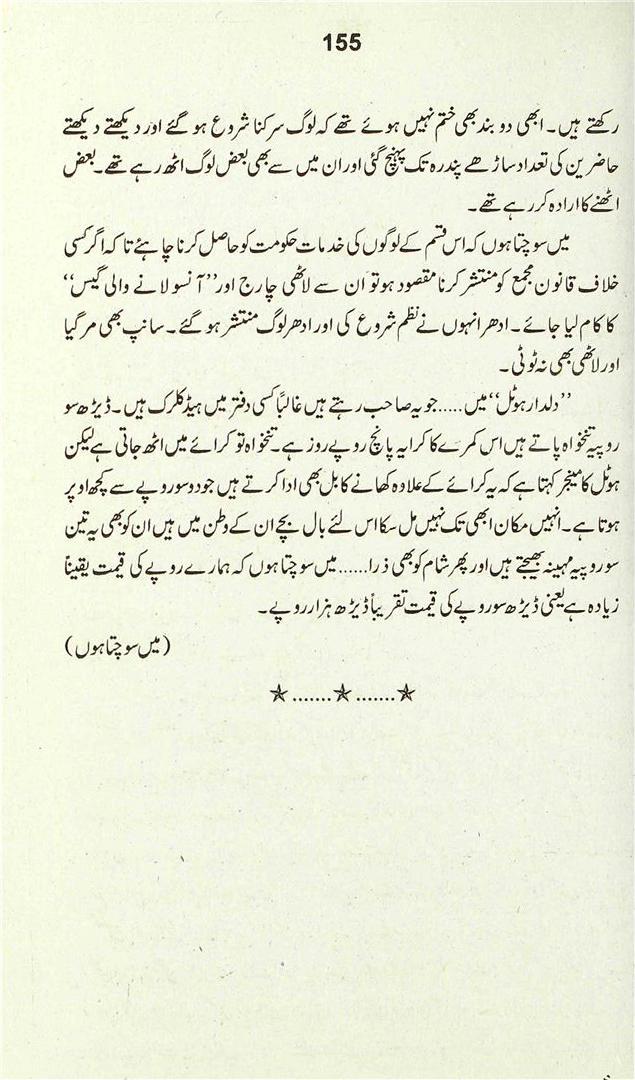 155
رکھتے ہیں۔ ابھی دو بند بھی ختم نہیں ہوئے تھے کہ لوگ سرکنا شروع ہو گئے اور دیکھتے دیکھتے
حاضرین کی تعداد ساڑھے پندرہ تک پہنچ گئی اور ان میں سے بھی بعض لوگ اٹھ رہے تھے۔ بعض
اٹھنے کا ارادہ کر رہے تھے۔
میں سوچتا ہوں کہ اس قسم کے لوگوں کی خدمات حکومت کو حاصل کرنا چاہئے تاکہ اگر کسی
خلاف قانون مجمع کو منتشر کرنا مقصود ہو تو ان سے لاٹھی چارج اور ’’آنسو لانے والی گیس‘‘
کا کام لیا جائے۔ ادھر انہوں نے نظم شروع کی اور ادھر لوگ منتشر ہو گئے۔ سانپ بھی مر گیا
اور لاٹھی بھی نہ ٹوٹی۔
’’دلدار ہوٹل‘‘ میں ..... جو یہ صاحب رہتے ہیں غالباً کسی دفتر میں ہیڈ کلرک ہیں۔ ڈیڑھ سو
روپیہ تنخواہ پاتے ہیں اس کمرے کا کرایہ پانچ روپے روز ہے۔ تنخواہ تو کرائے میں اٹھ جاتی ہے لیکن
ہوٹل کا منیجر کہتا ہے کہ یہ کرائے کے علاوہ کھانے کا بل بھی ادا کرتے ہیں جو دو سو روپے سے کچھ اوپر
ہوتا ہے۔ انہیں مکان ابھی تک نہیں مل سکا اس لئے بال بچے ان کے وطن میں ہیں ان کو بھی یہ تین
سو روپیہ مہینہ بھیجتے ہیں اور پھر شام کو بھی ذرا ...... میں سوچتا ہوں کہ ہمارے روپے کی قیمت یقیناً
زیادہ ہے یعنی ڈیڑھ سو روپے کی قیمت تقریباً ڈیڑھ ہزار روپے۔
(میں سوچتا ہوں)
✯.......✯.......✯